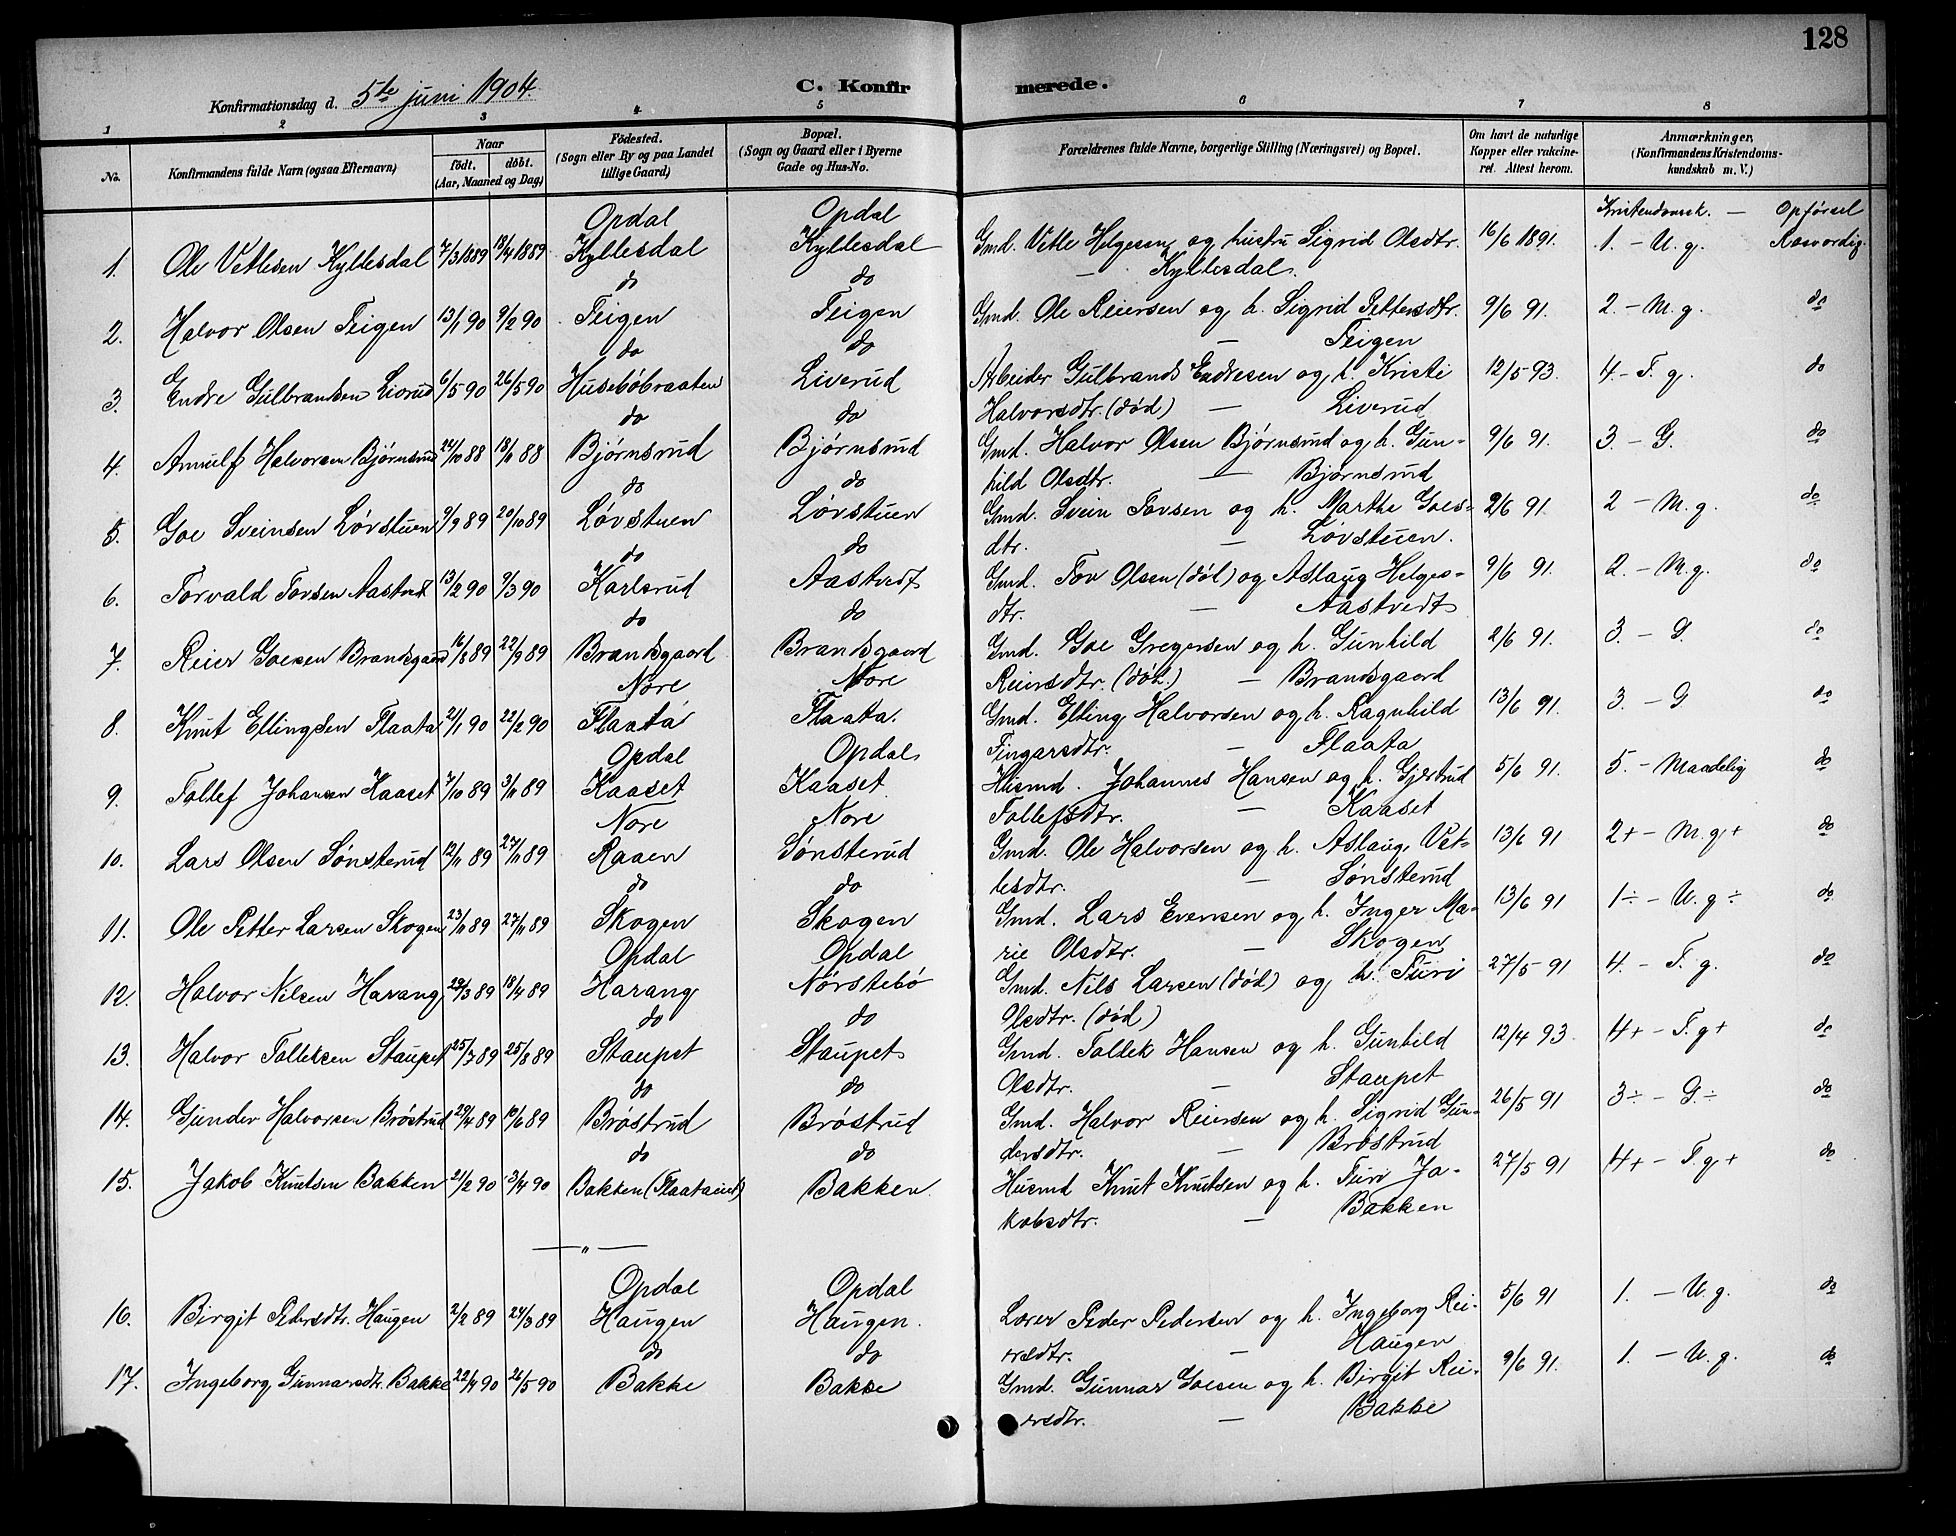 128
Konfirmationsdag d. 5te juni 1904.
C. Konfirmerede.
1 2 3 4 5 6 7 8
No. Konfirmandens fulde Navn (ogsaa Efternavn) Naar født. døbt. (Aar, Maaned og Dag) Födested. (Sogn eller By og paa Landet tillige Gaard) Bopæl. (Sogn og Gaard eller i Byerne Gade og Hus-No. Forældrenes fulde Navne, borgerlige Stilling (Næringsvei) og Bopæl. Om havt de naturlige Kopper eller vakcineret. Attest herom. Anmærkninger, (Konfirmandens Kristendomskundskab m. V.)
Opdal Opdal Kristendomsk. — Opførsel
1. Ole Vetlesen Kyllesdal 7/3 1889 13/4 1889 Kyllesdal Kyllesdal Gmd. Vetle Helgesen og hustru Sigrid Olsdtr. 16/6 1891. 1. - U. g. Rosværdig.
do do — Kyllesdal.
2. Halvor Olsen Teigen 13/1 90 9/2 90 Teigen Teigen Gmd. Ole Reiersen og h. Sigrid Pettersdtr. 9/6 91. 2. - M. g. do
do do — Teigen
3. Endre Gulbrandsen Liverud 6/5 90 26/5 90 Husebøbraaten Liverud Arbeider Gulbrand Endresen og h. Kristi 12/5 93. 4. - T. g. do
do do Halvorsdtr. (død) — Liverud
4. Arnulf Halvorsen Bjørnsrud 24/10 88 18/11 88 Bjørnsrud Bjørnsrud Gmd. Halvor Olsen Bjørnsrud og h. Gun- 9/6 91. 3. - G. do
do do hild Olsdtr. — Bjørnsrud
5. Goe Sveinsen Løvstuen 9/9 89 20/10 89 Løvstuen Løvstuen Gmd. Svein Tovsen og h. Marthe Goes- 2/6 91. 2 - M. g. do
do do dtr. — Løvstuen.
6. Torvald Tovsen Aastvedt 13/2 90 9/3 90 Karlsrud Aastvedt Gmd. Tov Olsen (død) og Aslaug Helges- 9/6 91. 2. - M. g. do
do do dtr. — Aastvedt
7. Reier Goesen Brandsgaard 16/8 89 22/9 89 Brandsgaard Brandsgaard Gmd. Goe Gregersen og h. Gunhild 2/6 91. 3. - G. do
Nore Nore Reiersdtr. (død.) — Brandsgaard
8. Knut Ellingsen Flaata 2/1 90 22/2 90 Flaata Flaata. Gmd. Elling Halvorsen og h. Ragnhild 13/6 91. 3. - G do
Opdal Opdal Fingarsdtr. — Flaata
9. Tollef Johansen Kaaset 7/10 89 3/11 89 Kaaset Kaaset Husmd. Johannes Hansen og h. Gjertrud 5/6 91. 5. - Maadelig do
Nore Nore Tollefsdtr. — Kaaset
10. Lars Olsen Sønsterud 12/11 89 27/11 89 Raaen Sønsterud Gmd. Ole Halvorsen og h. Aslaug Vet- 13/6 91 2+ - M. g + do
do do lesdtr. — Sønsterud
11. Ole Petter Larsen Skogen 23/11 89 27/11 89 Skogen Skogen Gmd. Lars Evensen og h. Inger Ma- 13/6 91 1÷ - U. g ÷ do
Opdal Opdal rie Olsdtr. — Skogen
12. Halvor Nilsen Harang 29/3 89 18/4 89 Harang Nørstebø Gmd. Nils Larsen (død) og h. Turi 27/5 91 4. - T. g. do
do do Olsdtr. (død)
13. Halvor Tolleksen Staupet 25/7 89 25/8 89 Staupet Staupet Gmd. Tollek Hansen og h. Gunhild 12/4 93. 4+ - T. g + do
do do Olsdtr. — Staupet
14. Gunder Halvorsen Brøstrud 29/4 89 10/6 89 Brøstrud Brøstrud Gmd. Halvor Reiersen og h. Sigrid Gun- 26/5 91 3÷ - G. ÷ do
do do dersdtr. — Brøstrud
15. Jakob Knutsen Bakken 21/2 90 3/4 90 Bakken (Flaataeiet) Bakken Husmd Knut Knutsen og h. Turi Ja- 27/5 91 4+ - T. g + do
kobsdtr. — Bakken
— " —
Opdal Opdal
16. Birgit Pedersdtr. Haugen 2/2 89 24/3 89 Haugen Haugen. Lærer Peder Pedersen og h. Ingeborg Rei- 5/6 91 1. - U. g. do
do do ersdtr. — Haugen
17. Ingeborg Gunnarsdtr. Bakke 22/4 90 26/5 90 Bakke Bakke Gmd. Gunnar Goesen og h. Birgit Rei- 9/6 91. 1. - U. g. do
ersdtr. — Bakke